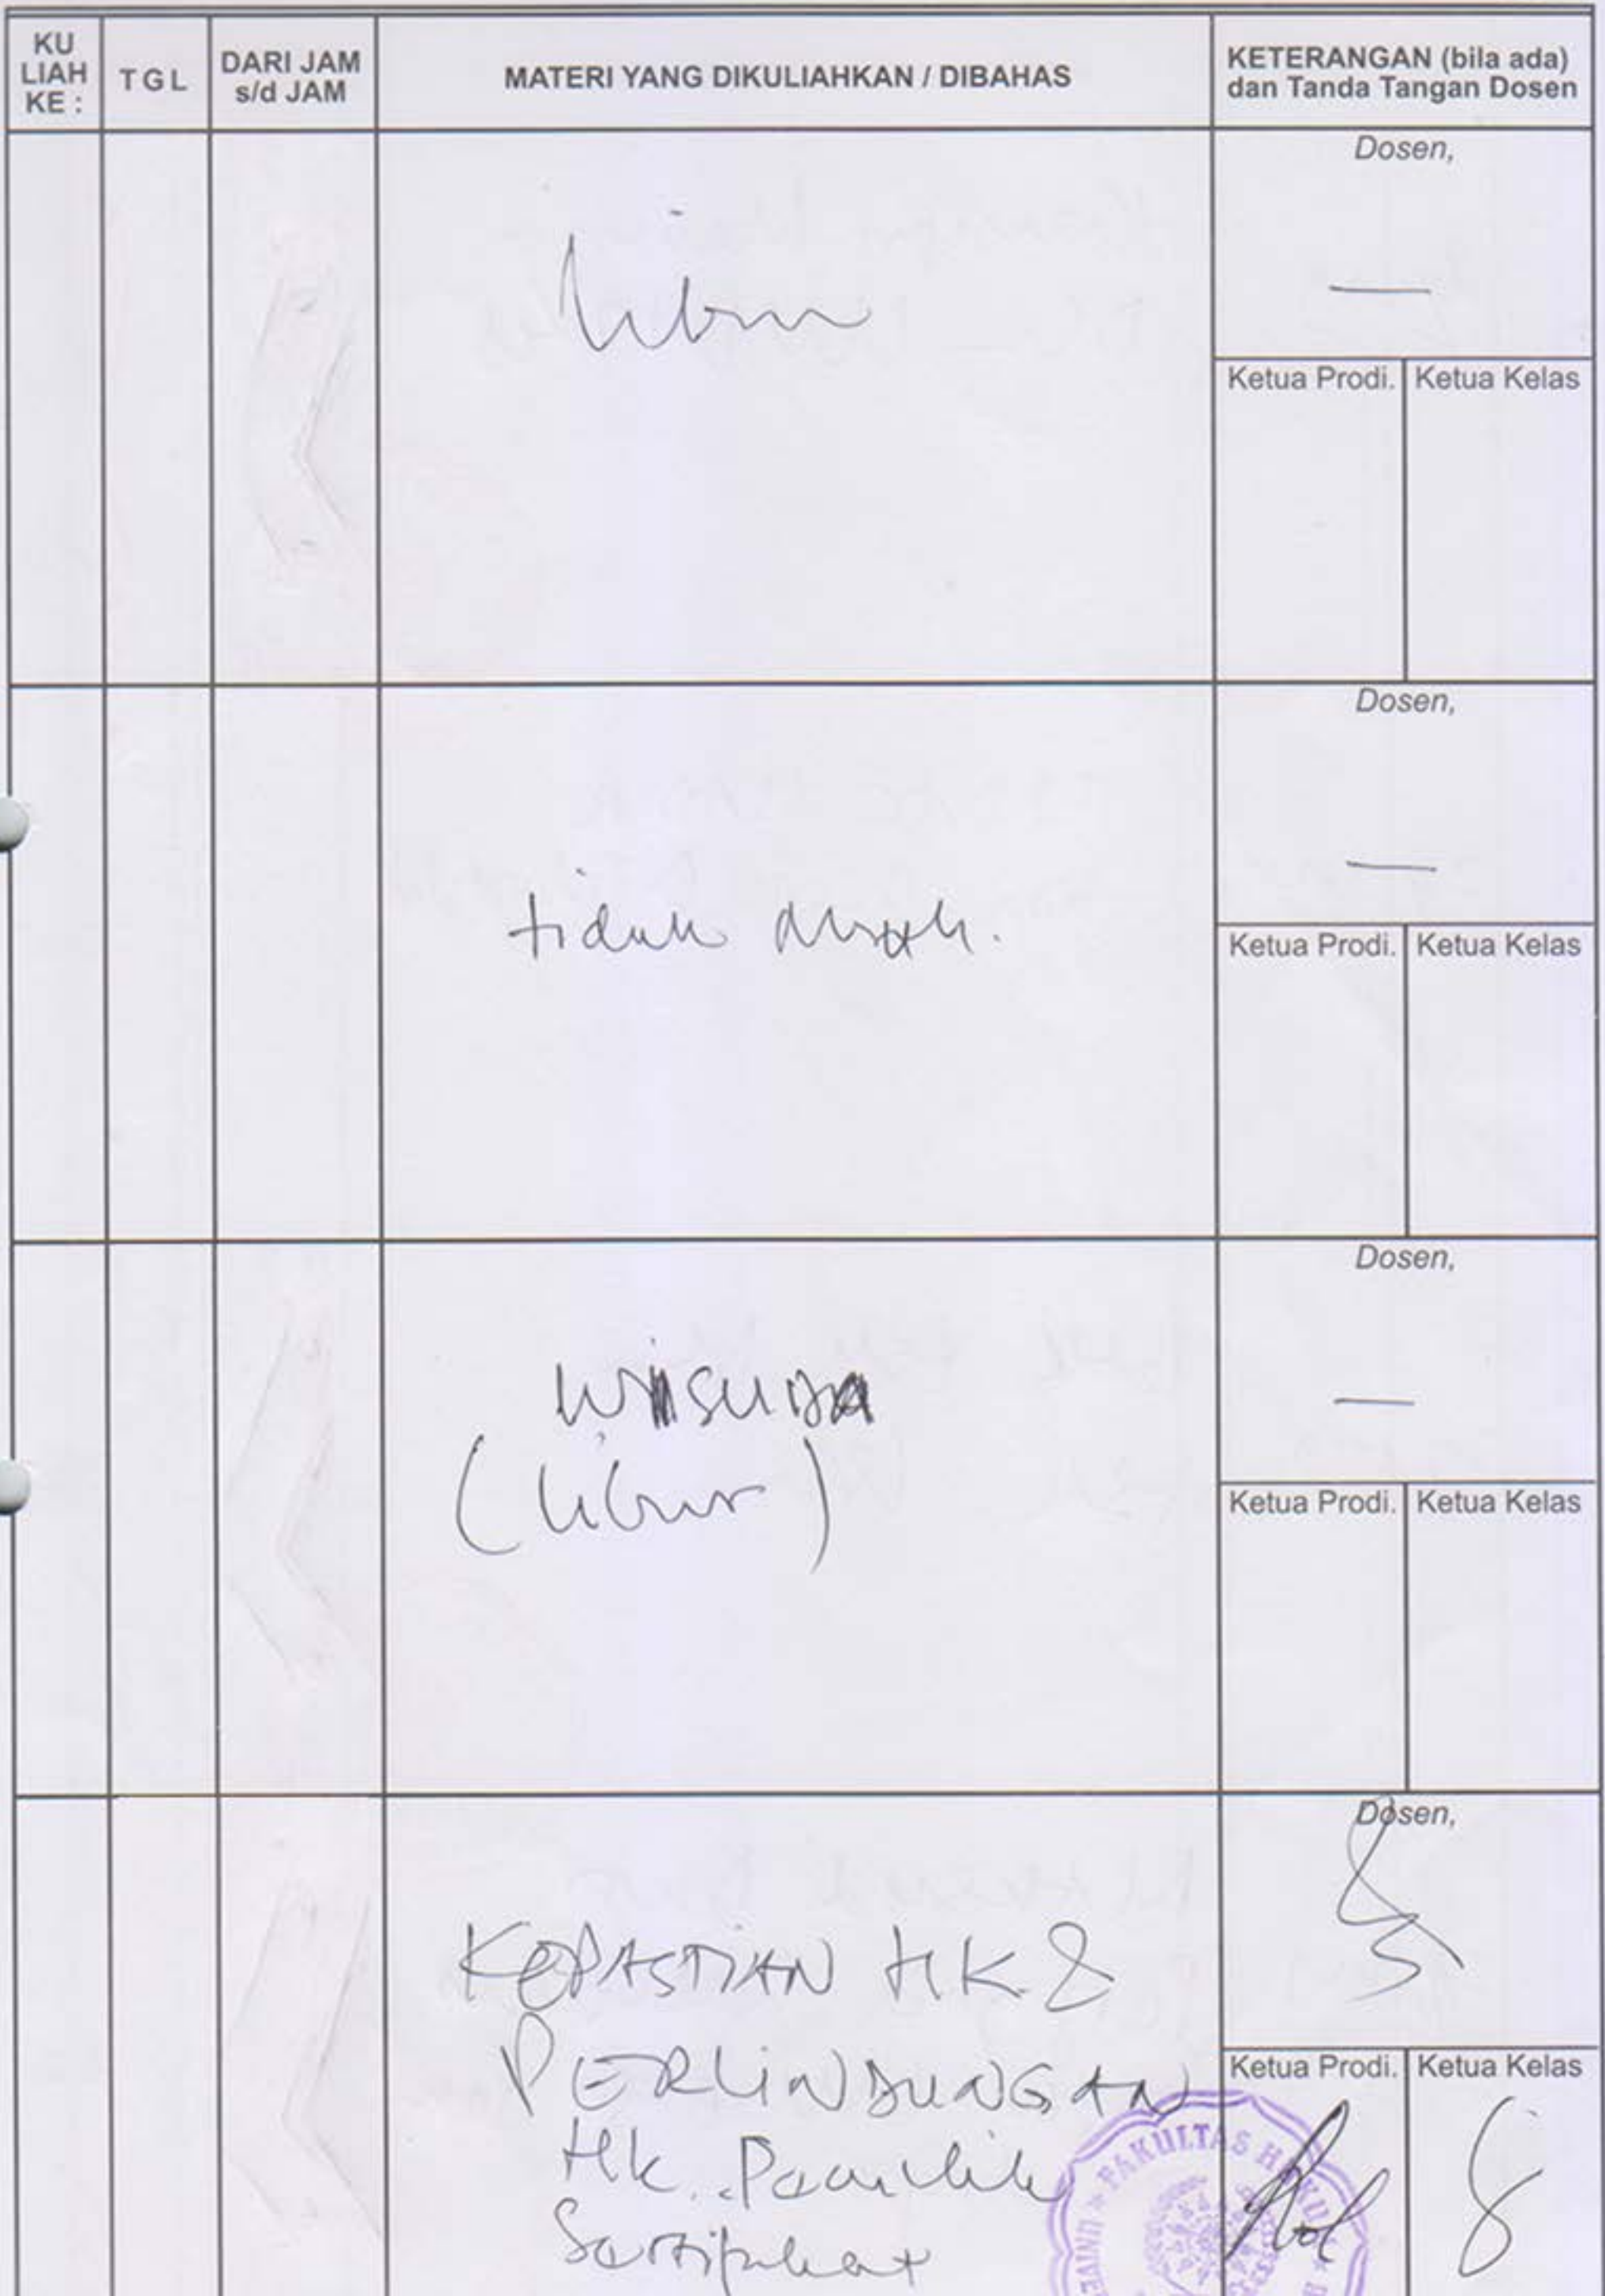 KU
LIAH
KE :
TGL
DARI JAM
s/d JAM
MATERI YANG DIKULIAHKAN / DIBAHAS
KETERANGAN (bila ada)
dan Tanda Tangan Dosen
libur
Dosen,
Ketua Prodi. Ketua Kelas
tidak
Dosen,
Ketua Prodi. Ketua Kelas
WISUDA
(libur)
Dosen,
Ketua Prodi. Ketua Kelas
KEPASTIAN HK &
PERLINDUNGAN
Hk. Pemilik
Sertipikat
Dosen,
Ketua Prodi. Ketua Kelas
FAKULTAS HUKUM